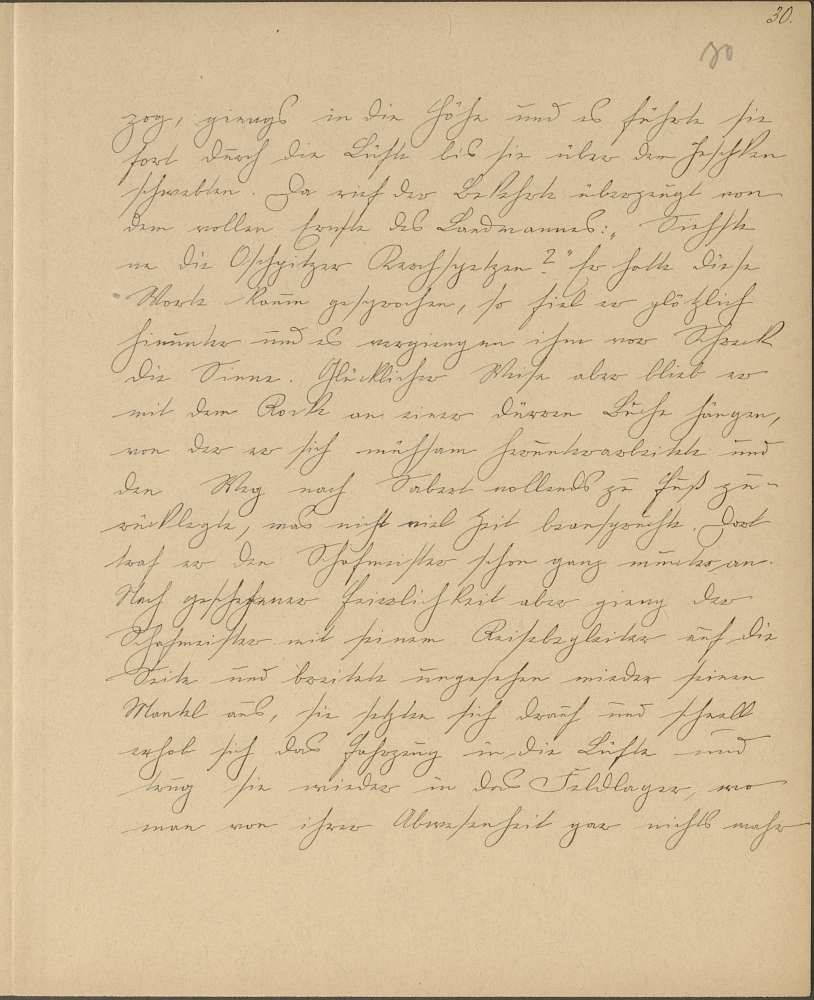 30.
30
zog, giengs in die Höhe und es führte sie
fort durch die Lüfte bis sie über den Jeschken
schwebten. Da rief der Bekehrte überzeugt von
dem vollen Ernste des Landmannes: „Siehste
ne die Oschpitzer Kerchspetzen?" Er hatte diese
Worte kaum gesprochen, so fiel er plötzlich
hinunter und es vergiengen ihm vor Schreck
die Sinne. Glücklicher Weise aber blieb er
mit dem Rocke an einer dürren Buche hängen,
von der er sich mühsam herunterarbeitete und
den Weg nach Sabert vollends zu Fuß zu-
rücklegte, was nicht viel Zeit beanspruchte. Dort
traf er den Schafmeister schon ganz munter an.
Nach geschehener Feierlichkeit aber gieng der
Schafmeister mit seinem Reisebegleiter auf die
Seite und breitete ungesehen wieder seinen
Mantel aus, sie setzten sich drauf und schnell
erhob sich das Fahrzeug in die Lüfte und
trug sie wieder in das Feldlager, wo
man von ihrer Abwesenheit gar nichts wahr